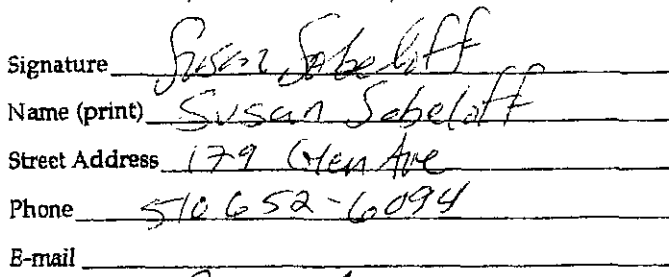 Signature Susan Sobeloff
Name (print) Susan Sobeloff
Street Address 179 Glen Ave
Phone 510 652-6094
E-mail